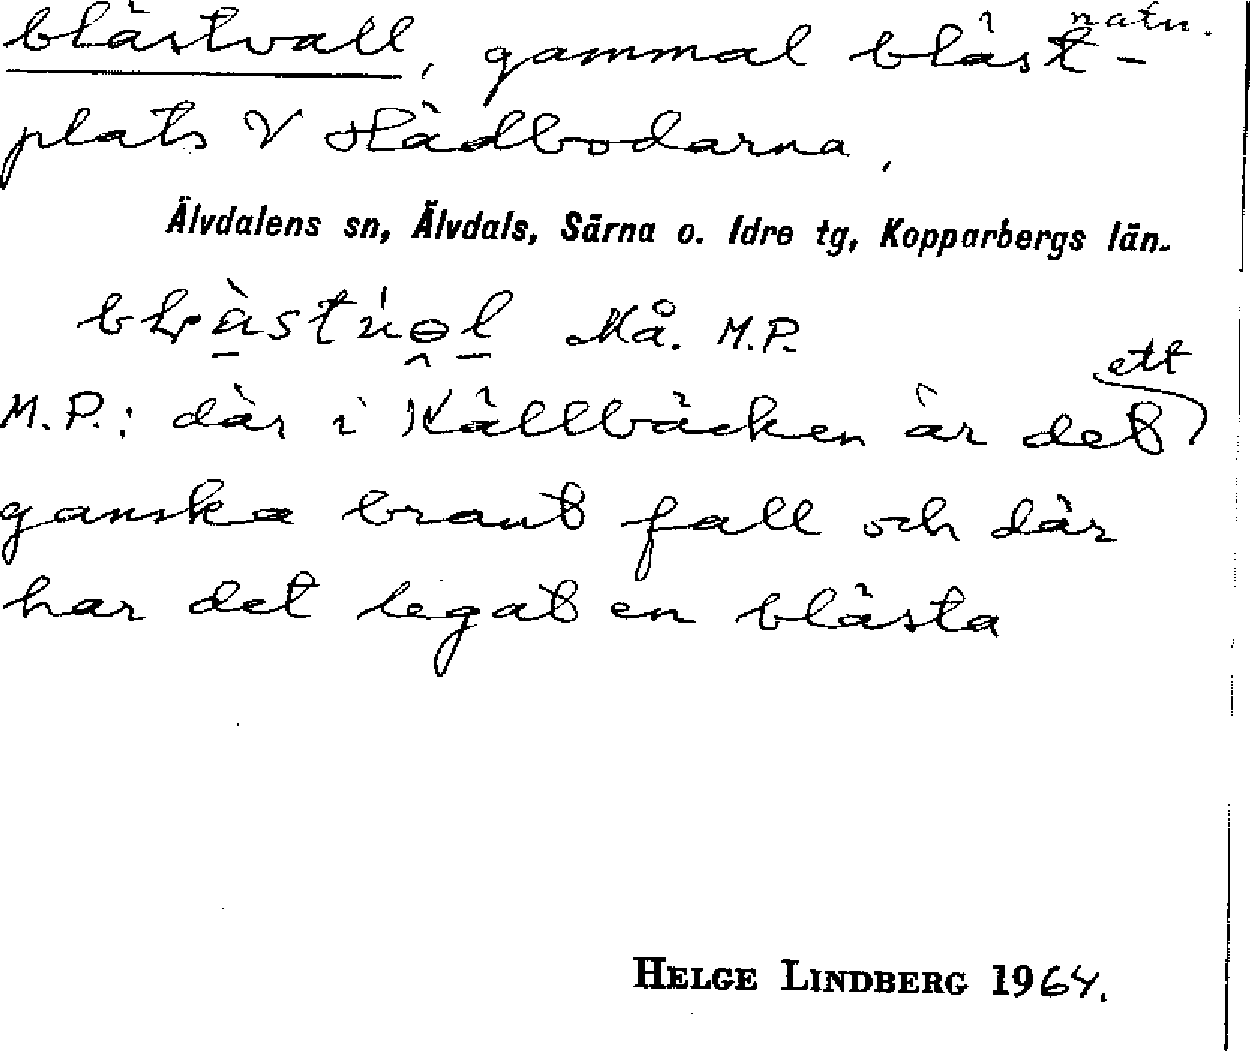 blästvall, gammal bläst- natn.
plats V Hädbodarna,
Älvdalens sn, Älvdals, Särna o. Idre tg, Kopparbergs län.
Må. M.P.
M.P.: där i Källbäcken är det ett
ganska brant fall och där
har det legat en blästa
HELGE LINDBERG 1964.